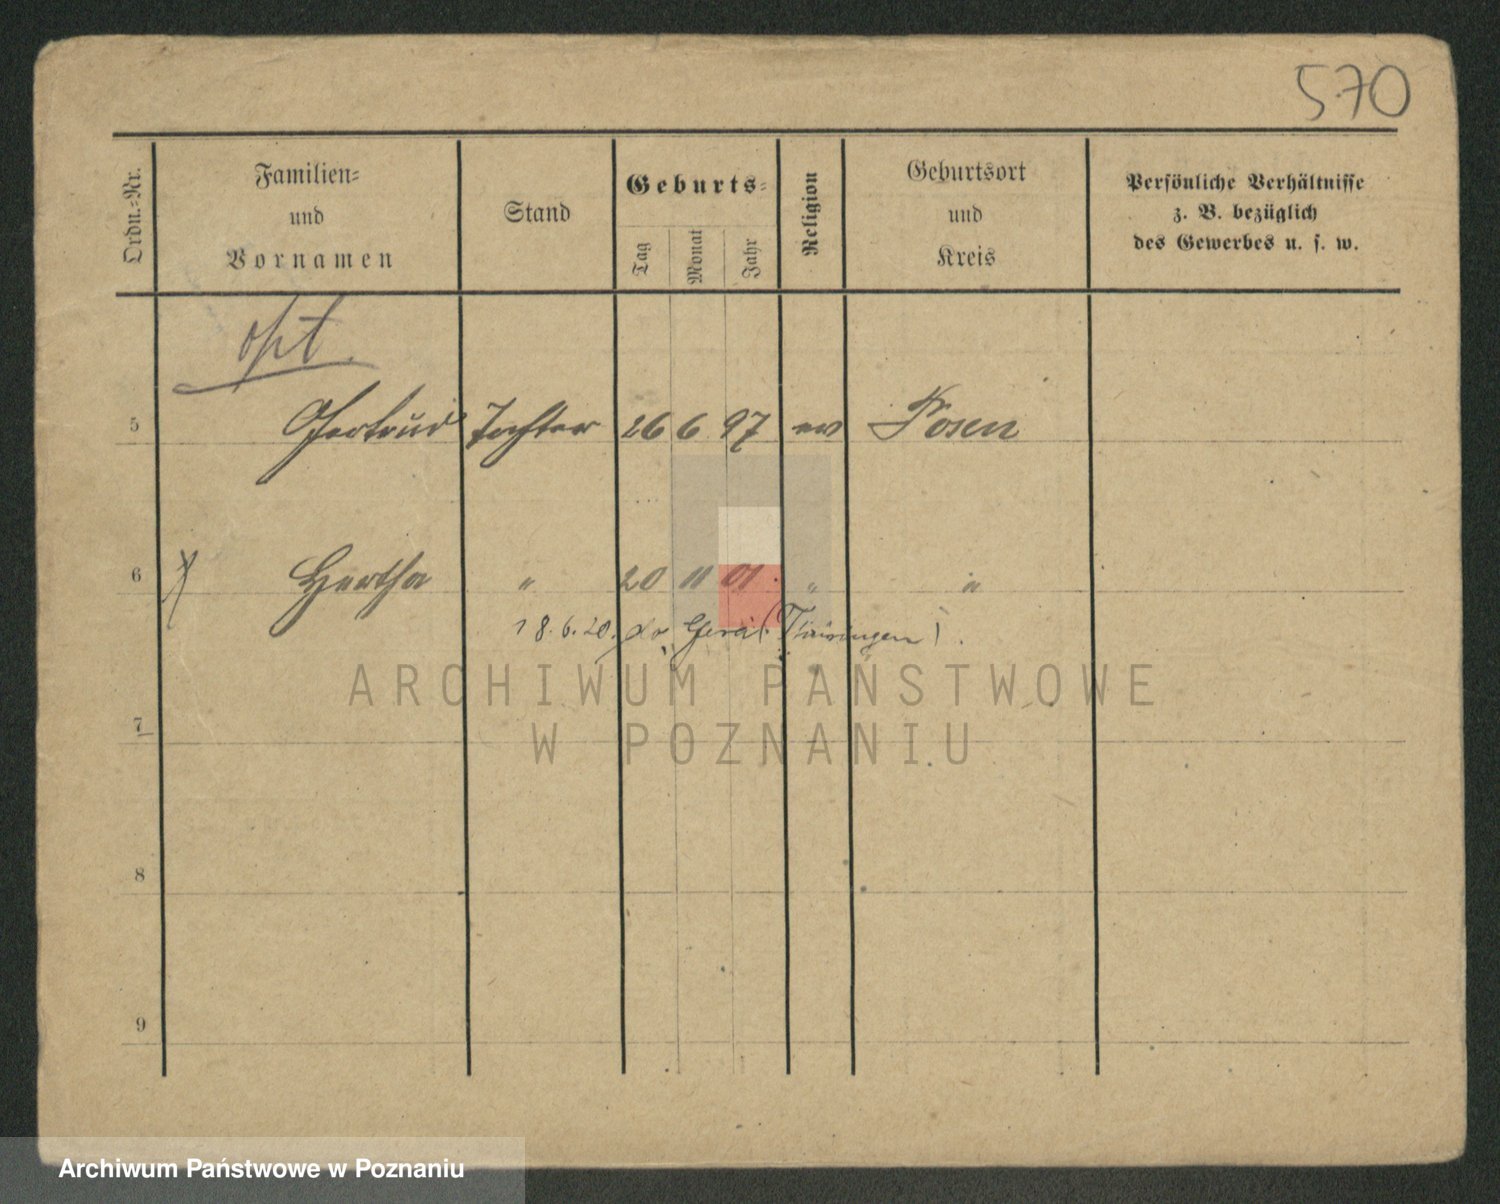 570
Ordn.-Nr.
Familien-
und
Vornamen
Stand
Geburts-
Tag
Monat
Jahr
Religion
Geburtsort
und
Kreis
Persönliche Verhältnisse
z. B. bezüglich
des Gewerbes u. s. w.
opt.
5 Gertrud Tochter 26 6 97 ev Posen
6 Hertha " 20 11 01. " "
18.6.20. Gera (Thüringen).
7
8
9
ARCHIWUM PAŃSTWOWE
W POZNANIU
Archiwum Państwowe w Poznaniu